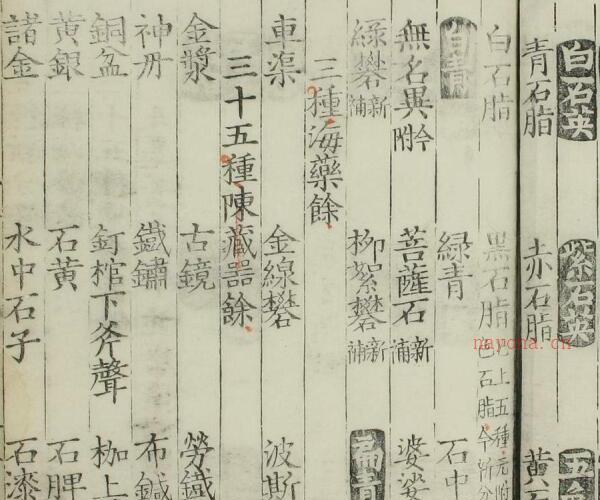 白石英 紫石英 五
青石脂 赤石脂 黃
白石脂 黑石脂已上五種元附五石脂今
白青 綠青 石中
無名異今附 菩薩石新補 婆娑
綠礬新補 柳絮礬新補 扁青
三種海藥餘
車渠 金線礬 波斯
三十五種陳藏器餘
金漿 古鏡 勞鐵
神丹 鐵鏽 布鍼
銅盆 釘棺下斧聲 枷上
黃銀 石黃 石脾
諸金 水中石子 石漆
nayona.cn